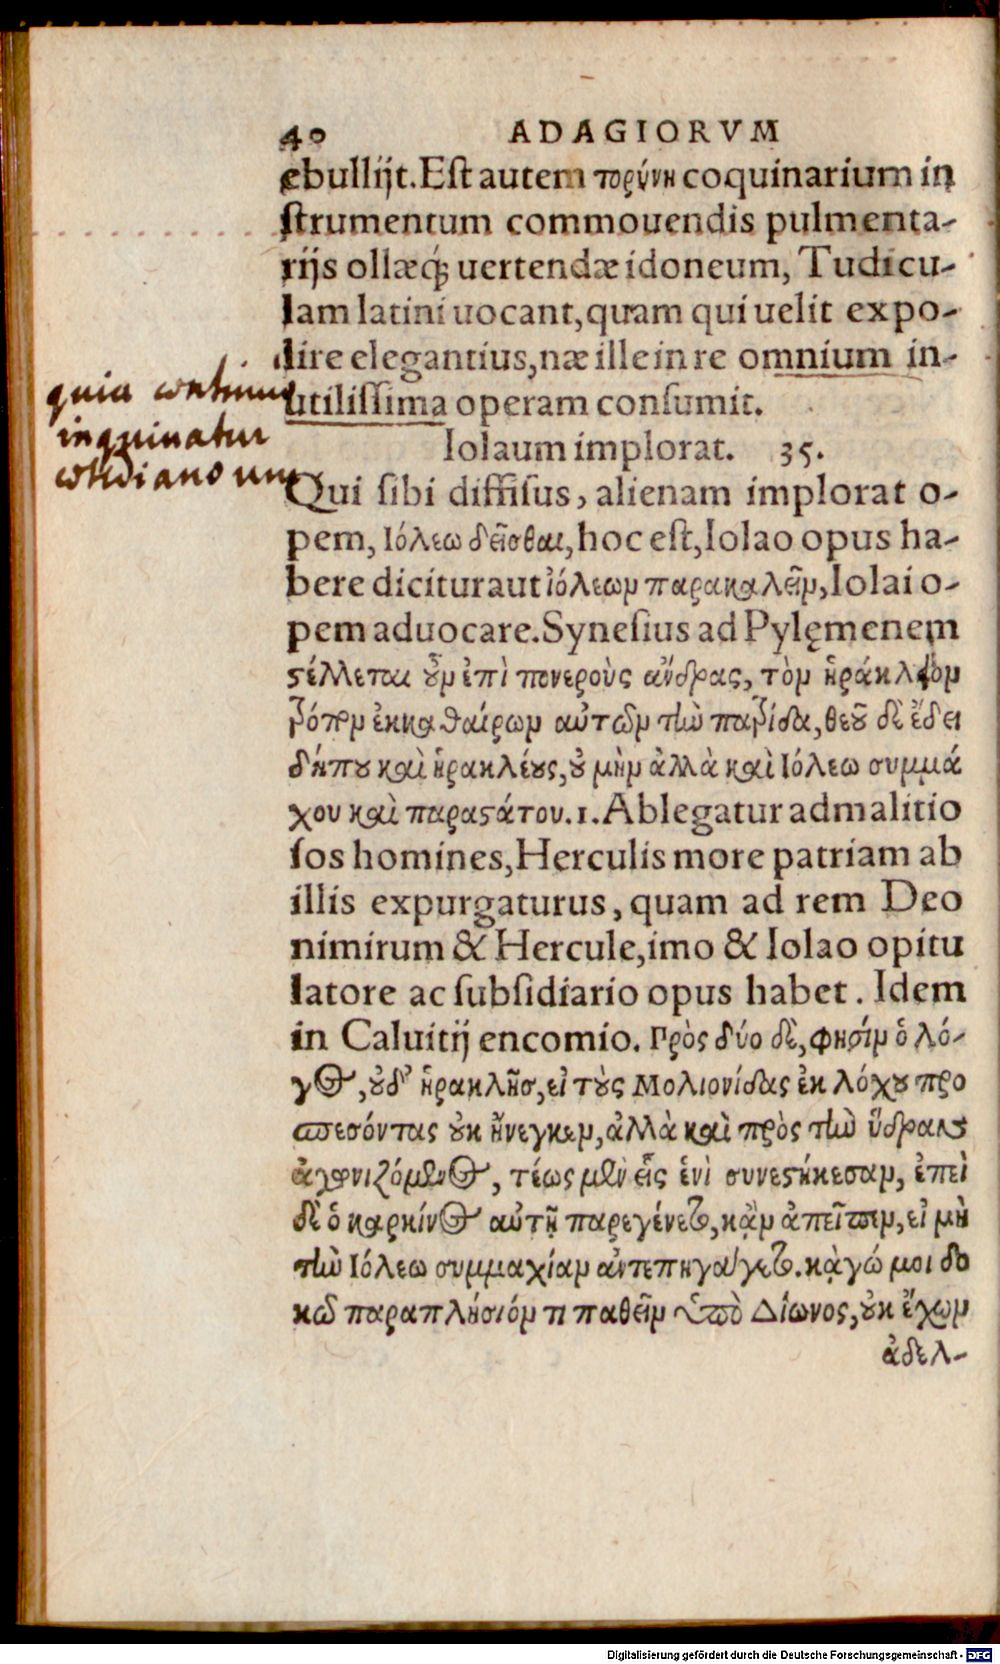 40 ADAGIORVM
ebullijt. Est autem τορύνη coquinarium in
strumentum commouendis pulmenta-
rijs ollæq́; uertendæ idoneum, Tudicu-
lam latini uocant, quam qui uelit expo-
lire elegantius, næ ille in re omnium in-
utilissima operam consumit.
quia continue
inquinatur
cotidiano
Iolaum implorat. 35.
Qui sibi diffisus, alienam implorat o-
pem, Ιόλεω δεῖσθαι, hoc est, Iolao opus ha-
bere dicitur aut ἰόλεων παρακαλεῖν, Iolai o-
pem aduocare. Synesius ad Pylęmenem
ϛέλλεται οὖν ἐπὶ πονεροὺς ἄνδρας, τὸν ἡράκλειον
τρόπον ἐκκαθαίρων αὐτῶν τὴν πατρίδα, θεοῦ δὲ ἔδει
δήπου καὶ ἡρακλέους, οὐ μὴν ἀλλὰ καὶ Ιόλεω συμμά
χου καὶ παραϛάτου. 1. Ablegatur ad malitio
sos homines, Herculis more patriam ab
illis expurgaturus, quam ad rem Deo
nimirum & Hercule, imo & Iolao opitu
latore ac subsidiario opus habet. Idem
in Caluitij encomio. Πρὸς δύο δὲ, φησίν ὁ λό-
γος, οὐδ' ἡρακλῆσ, εἰ τοὺς Μολιονίδας ἐκ λόχου προ
πεσόντας οὐκ ἤνεγκεν, ἀλλὰ καὶ πρὸς τὴν ὕδραν
ἀγωνιζόμενος, τέως μὲν εἷς ἑνὶ συνεϛήκεσαν, ἐπεὶ
δὲ ὁ καρκίνος αὐτῇ παρεγένετο, κᾂν ἀπεῖπεν, εἰ μὴ
τὴν Ιόλεω συμμαχίαν ἀντεπηγάγετο. κᾀγώ μοι δο
κῶ παραπλήσιόν τι παθεῖν ὑπὸ Δίωνος, οὐκ ἔχων
ἀδελ-
Digitalisierung gefördert durch die Deutsche Forschungsgemeinschaft - DFG